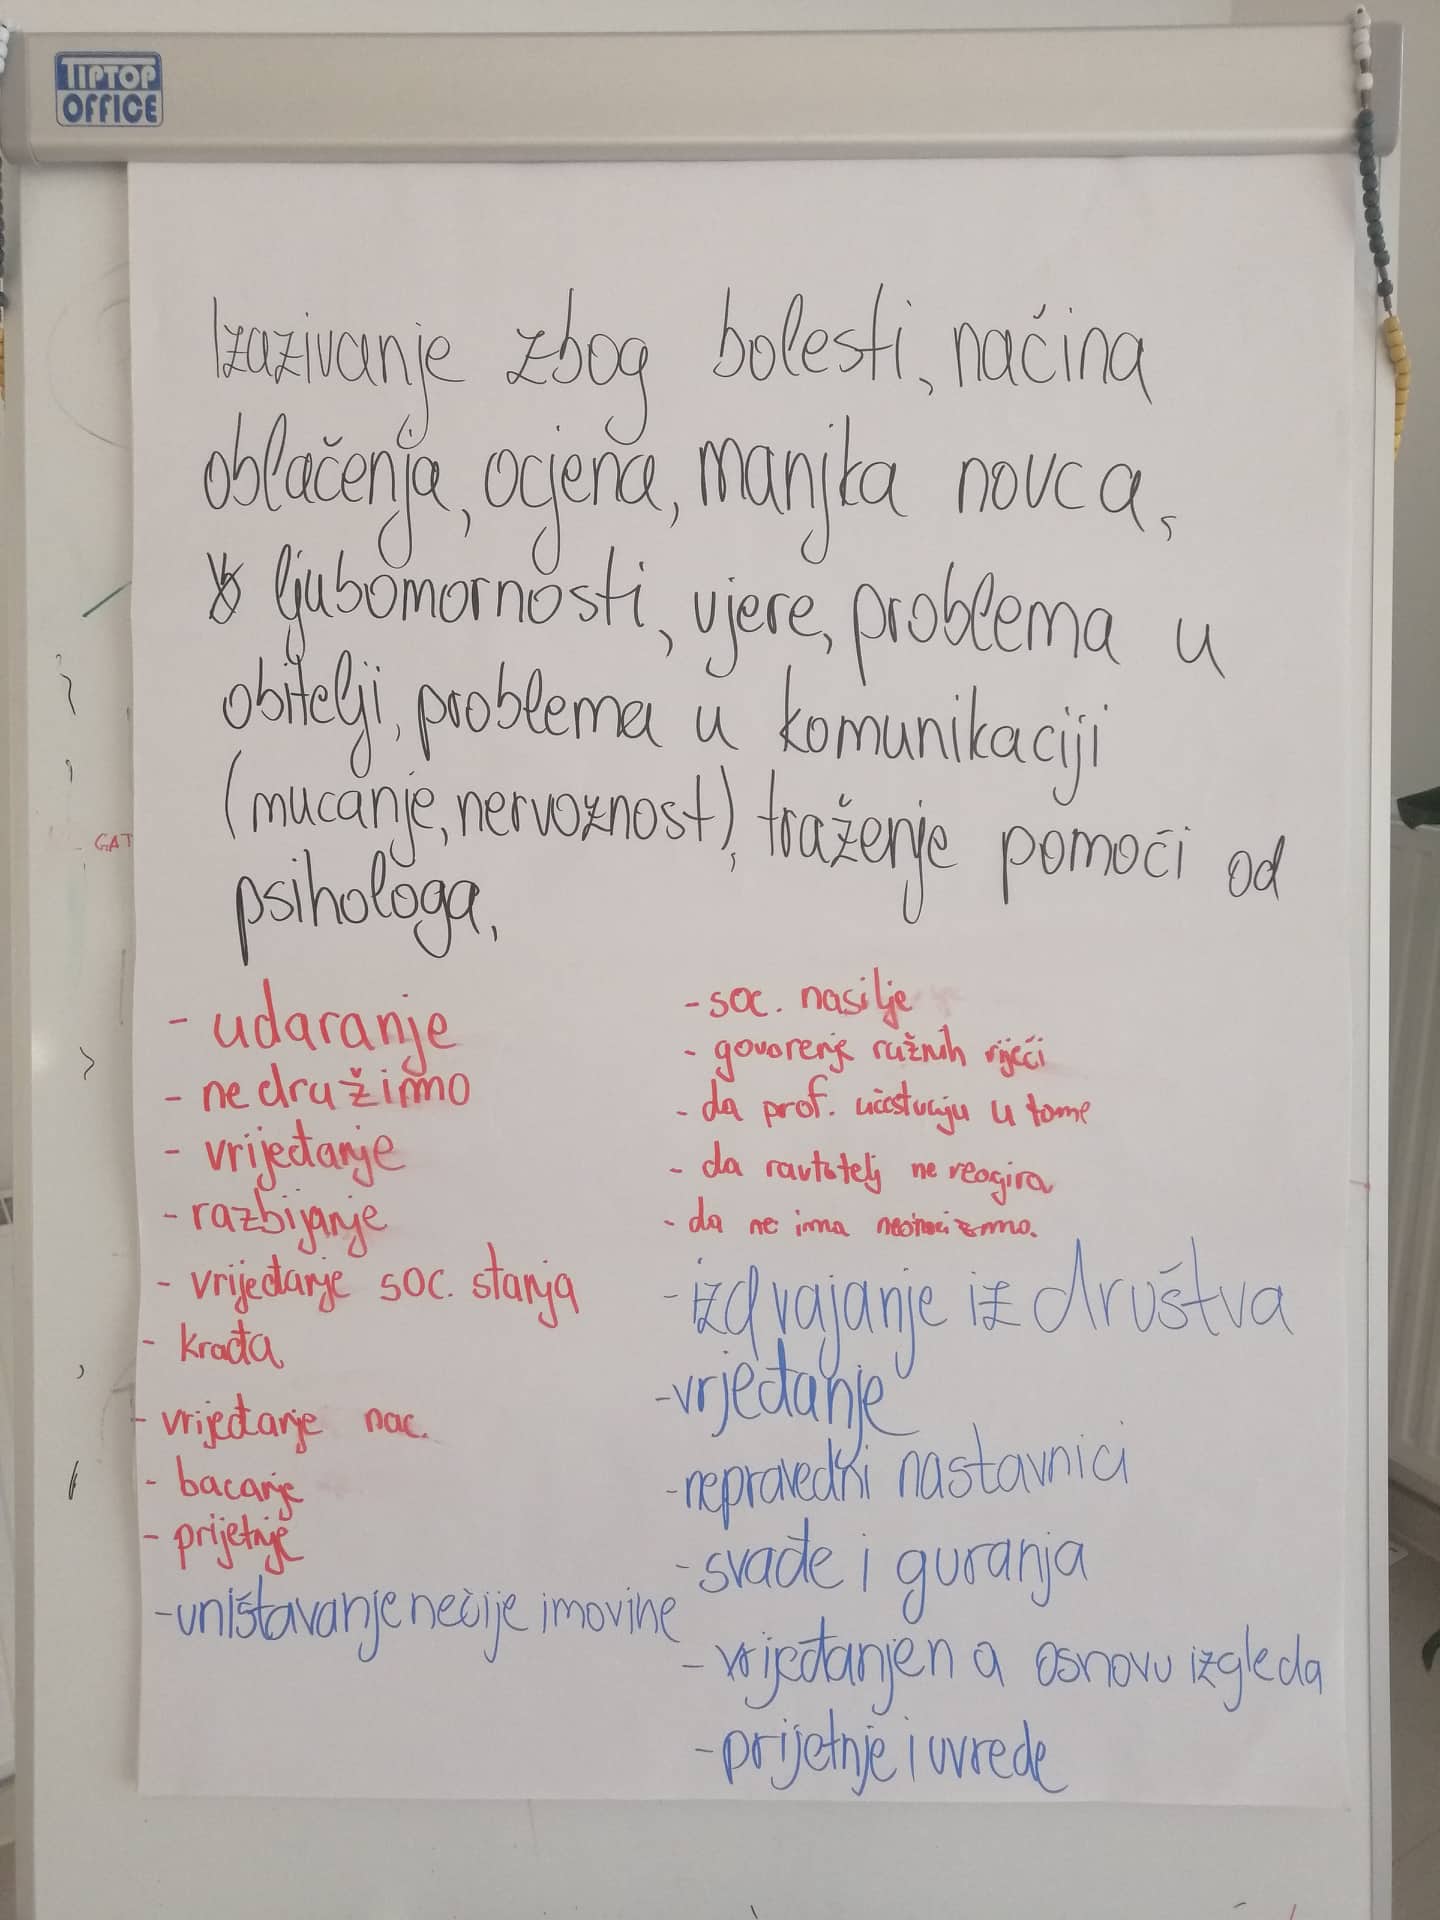 TIPTOP
OFFICE
Izazivanje zbog bolesti, naćina
oblačenja, ocjena, manjka novca,
ljubomornosti, vjere, problema u
obitelji, problema u komunikaciji
(mucanje, nervoznost), traženje pomoći od
psihologa,
GAT
- udaranje
- ne družimo
- vrijeđanje
- razbijanje
- vrijeđanje soc. stanja
- krađa
- vrijeđanje nac.
- bacanje
- prijetnje
- uništavanje nečije imovine
- soc. nasilje
- govorenje ružnih riječi
- da prof. učestvuju u tome
- da ne reagira
- da ne ima
- izdvajanje iz društva
- vrjeđanje
- nepravedni nastavnici
- svađe i guranja
- vrijeđanje na osnovu izgleda
- prijetnje i uvrede